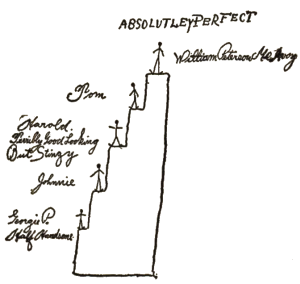 ABSOLUTLEY PERFECT
William Peterson McAvoy
Tom
Harold,
Really Good Looking
But Stingy
Johnnie
Georgie P.
Half Handsome